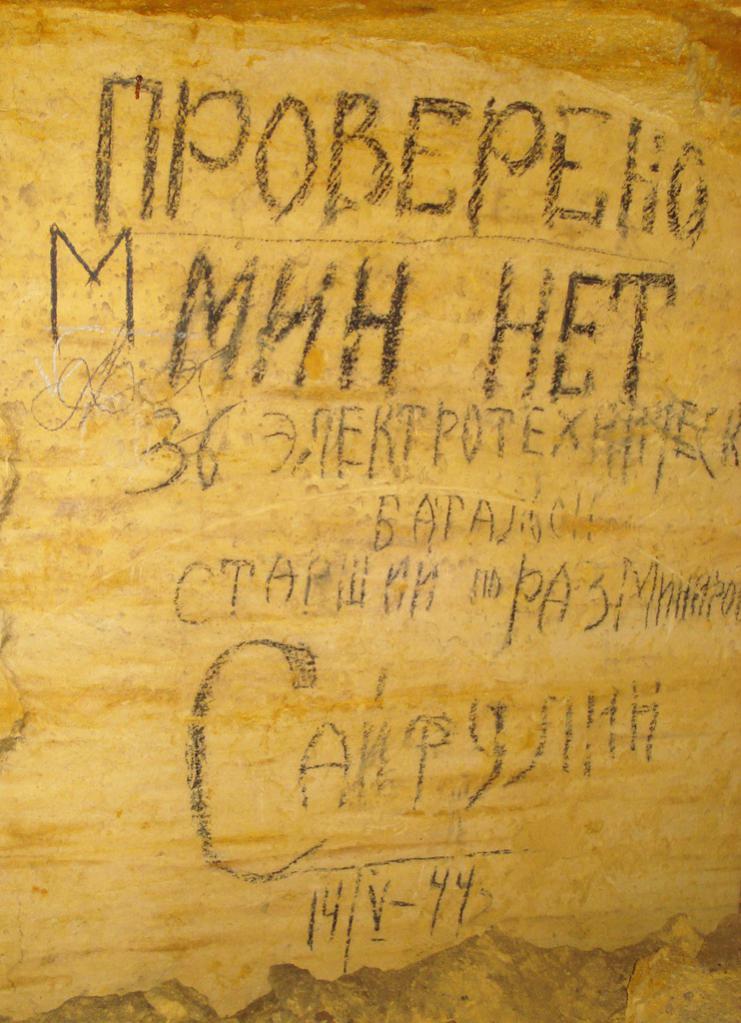 ПРОВЕРЕНО
М МИН НЕТ
36 ЭЛЕКТРОТЕХНИЧЕСК
БАТАЛЬОН
СТАРШИЙ ПО РАЗМИНИРО
САЙФУЛИН
14/V-44